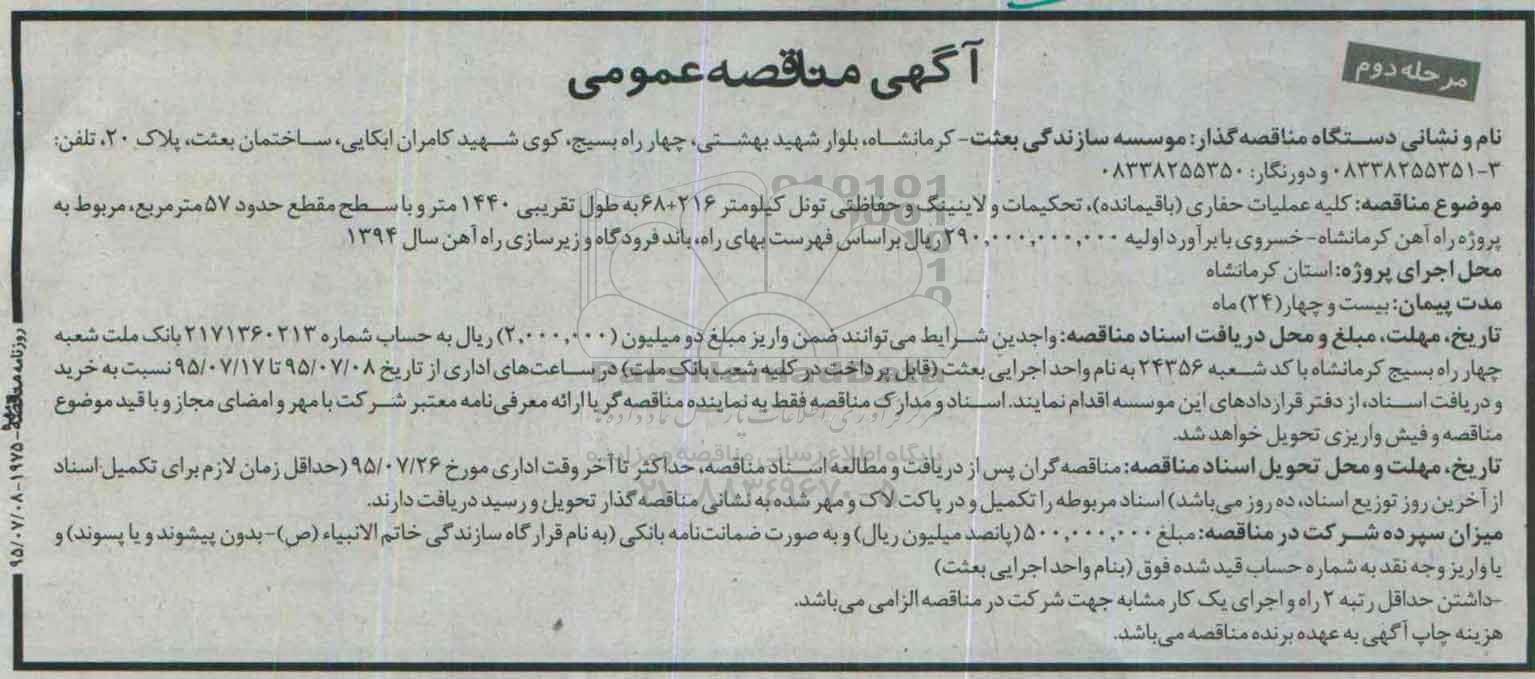 مرحله دوم
آگهی مناقصه عمومی
نام و نشانی دستگاه مناقصه گذار: موسسه سازندگی بعثت- کرمانشاه، بلوار شهید بهشتی، چهار راه بسیج، کوی شهید کامران ابکایی، ساختمان بعثت، پلاک ۲۰، تلفن:
۳-۰۸۳۳۸۲۵۵۳۵۱ و دورنگار: ۰۸۳۳۸۲۵۵۳۵۰
موضوع مناقصه: کلیه عملیات حفاری (باقیمانده)، تحکیمات و لاینینگ و حفاظتی تونل کیلومتر ۲۱۶+۶۸ به طول تقریبی ۱۴۴۰ متر و با سطح مقطع حدود ۵۷ مترمربع، مربوط به
پروژه راه آهن کرمانشاه-خسروی با برآورد اولیه ۲۹۰,۰۰۰,۰۰۰,۰۰۰ ریال براساس فهرست بهای راه، باند فرودگاه و زیرسازی راه آهن سال ۱۳۹۴
محل اجرای پروژه: استان کرمانشاه
مدت پیمان: بیست و چهار (۲۴) ماه
تاریخ، مهلت، مبلغ و محل دریافت اسناد مناقصه: واجدین شرایط می توانند ضمن واریز مبلغ دو میلیون (۲,۰۰۰,۰۰۰) ریال به حساب شماره ۲۱۷۱۳۶۰۲۱۳ بانک ملت شعبه
چهار راه بسیج کرمانشاه با کد شعبه ۲۴۳۵۶ به نام واحد اجرایی بعثت (قابل پرداخت در کلیه شعب بانک ملت) در ساعت‌های اداری از تاریخ ۹۵/۰۷/۰۸ تا ۹۵/۰۷/۱۷ نسبت به خرید
و دریافت اسناد، از دفتر قراردادهای این موسسه اقدام نمایند. اسناد و مدارک مناقصه فقط به نماینده مناقصه گر با ارائه معرفی‌نامه معتبر شرکت با مهر و امضای مجاز و با قید موضوع
مناقصه و فیش واریزی تحویل خواهد شد.
تاریخ، مهلت و محل تحویل اسناد مناقصه: مناقصه گران پس از دریافت و مطالعه اسناد مناقصه، حداکثر تا آخر وقت اداری مورخ ۹۵/۰۷/۲۶ (حداقل زمان لازم برای تکمیل اسناد
از آخرین روز توزیع اسناد، ده روز می‌باشد) اسناد مربوطه را تکمیل و در پاکت لاک و مهر شده به نشانی مناقصه گذار تحویل و رسید دریافت دارند.
میزان سپرده شرکت در مناقصه: مبلغ ۵۰۰,۰۰۰,۰۰۰ (پانصد میلیون ریال) و به صورت ضمانت‌نامه بانکی (به نام قرارگاه سازندگی خاتم الانبیاء (ص)-بدون پیشوند و یا پسوند) و
یا واریز وجه نقد به شماره حساب قید شده فوق (بنام واحد اجرایی بعثت)
-داشتن حداقل رتبه ۲ راه و اجرای یک کار مشابه جهت شرکت در مناقصه الزامی می‌باشد.
هزینه چاپ آگهی به عهده برنده مناقصه می‌باشد.
روزنامه مناقصه-۱۹۷۵-۹۵/۰۷/۰۸
ParsNamadData
پایگاه اطلاع رسانی مناقصه و مزایده